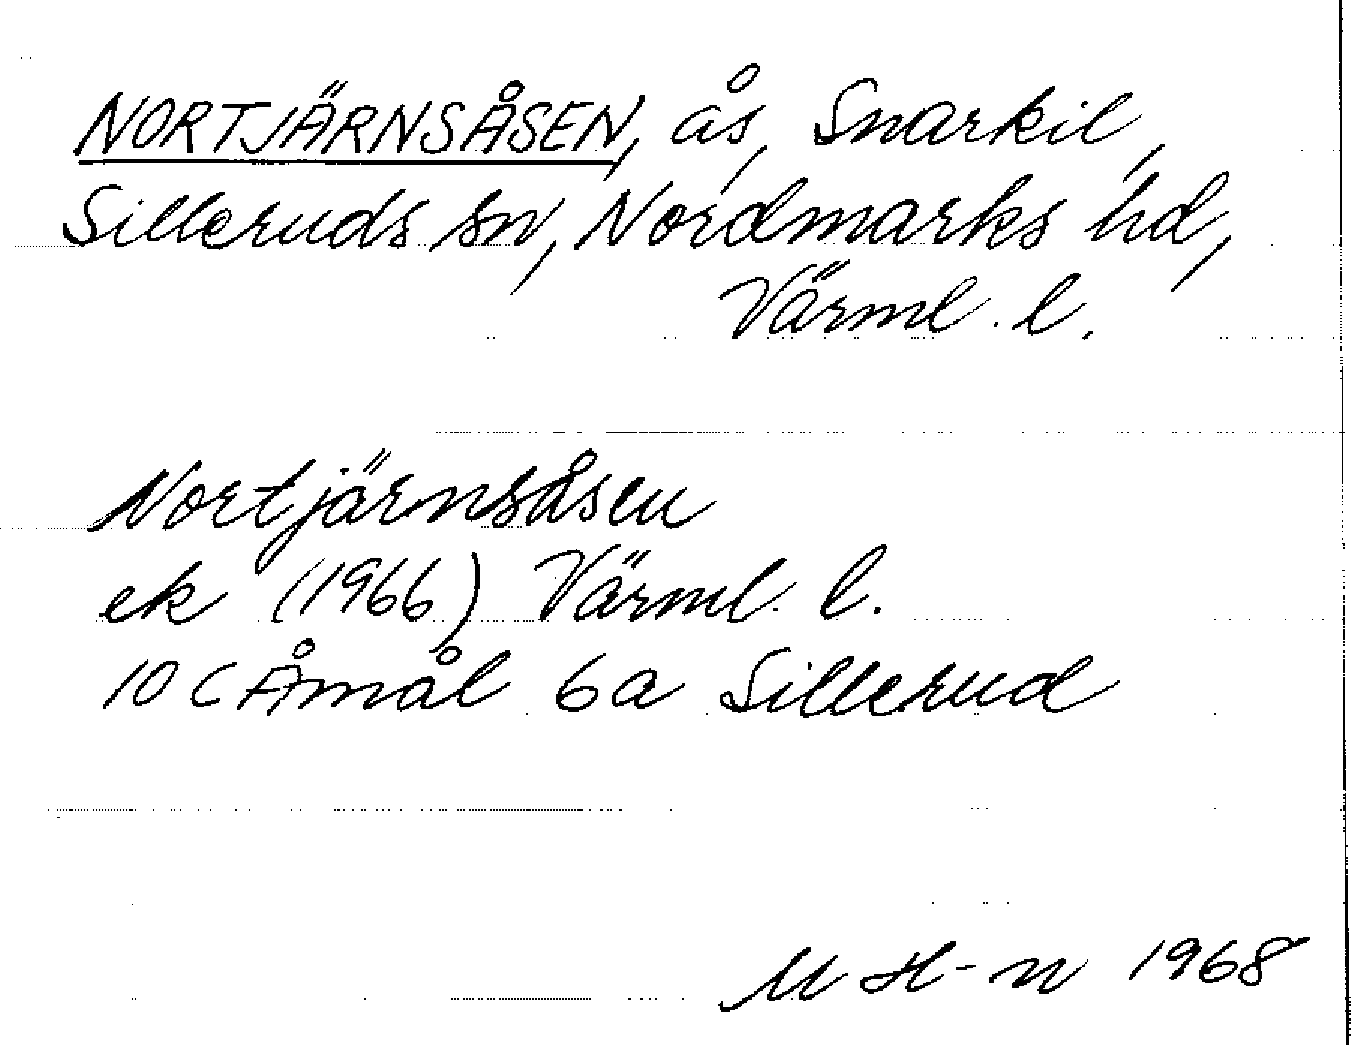 NORTJÄRNSÅSEN, ås, Snarkil,
Silleruds sn, Nordmarks hd,
Värml. l.
Nortjärnsåsen
ek (1966) Värml. l.
10 C Åmål 6a Sillerud
M H-n 1968